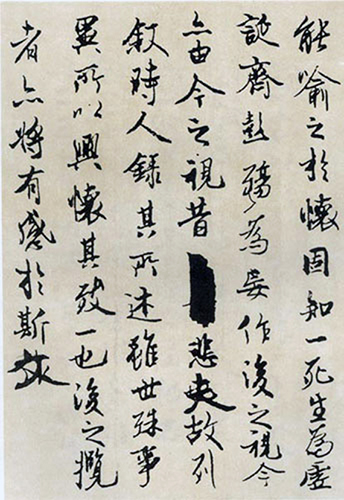 能喻之於懷固知一死生為虛
誕齊彭殤為妄作後之視今
亦由今之視昔悲夫故列
叙時人錄其所述雖世殊事
異所以興懷其致一也後之攬
者亦將有感於斯文